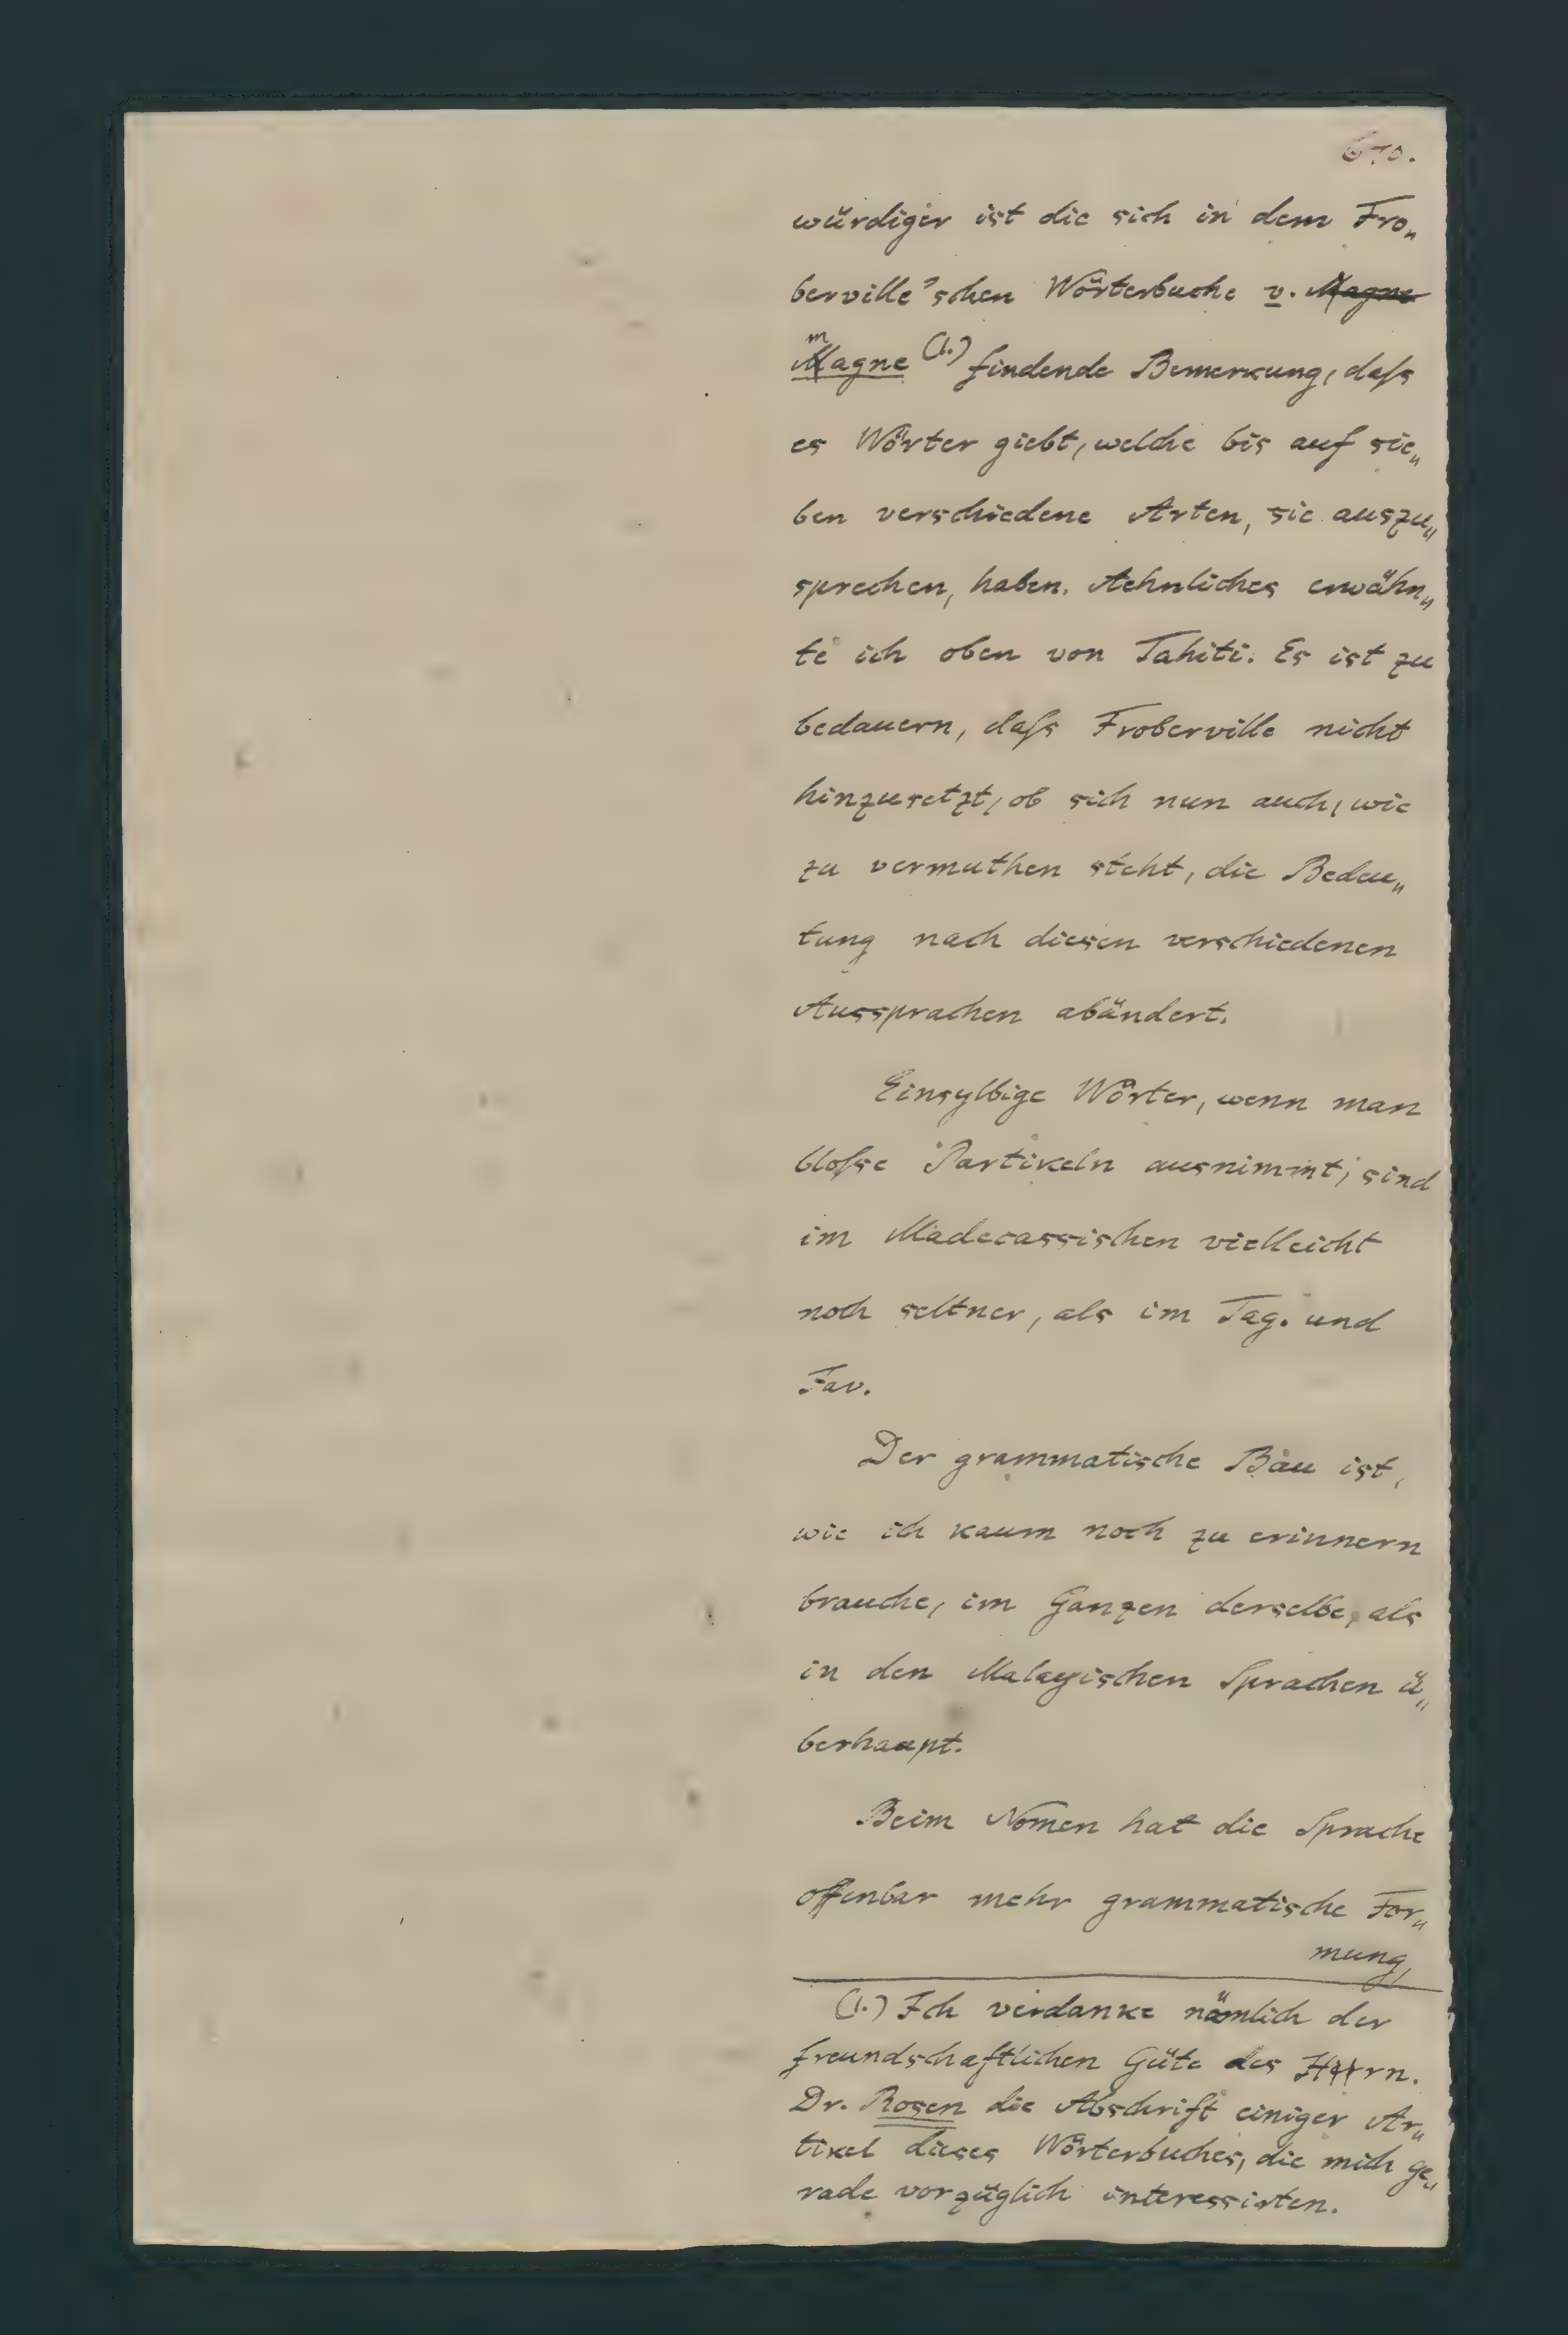 670.
würdiger ist die sich in dem Fro„
berville'schen Wörterbuche v. Magne
magne (1.) findende Bemerkung, daſs
es Wörter giebt, welche bis auf sie„
ben verschiedene Arten, sie auszu„
sprechen, haben. Aehnliches erwähn„
te ich oben von Tahiti. Es ist zu
bedauern, daſs Froberville nicht
hinzusetzt, ob sich nun auch, wie
zu vermuthen steht, die Bedeu„
tung nach diesen verschiedenen
Aussprachen abändert.
Einsylbige Wörter, wenn man
bloſse Partikeln ausnimmt, sind
im Madecassischen vielleicht
noch seltner, als im Tag. und
Jav.
Der grammatische Bau ist,
wie ich kaum noch zu erinnern
brauche, im Ganzen derselbe, als
in den Malayischen Sprachen ü„
berhaupt.
Beim Nomen hat die Sprache
offenbar mehr grammatische For„
mung,
(1.) Ich verdanke nämlich der
freundschaftlichen Güte des Herrn.
Dr. Rosen die Abschrift einiger Ar„
tikel dieses Wörterbuches, die mich ge„
rade vorzüglich interessirten.